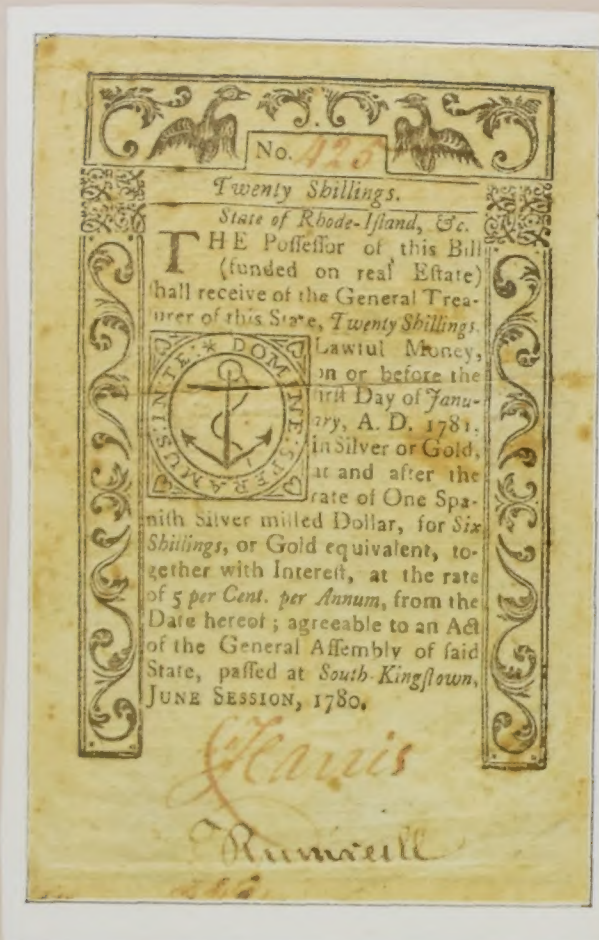 No. 425
Twenty Shillings.
State of Rhode-Iſland, &c.
THE Poſſeſſor of this Bill
(funded on real Eſtate)
ſhall receive of the General Trea-
urer of this State, Twenty Shillings
Lawful Money,
on or before the
firſt Day of Janu-
ary, A. D. 1781.
in Silver or Gold,
at and after the
rate of One Spa-
niſh Silver milled Dollar, for Six
Shillings, or Gold equivalent, to-
gether with Intereſt, at the rate
of 5 per Cent. per Annum, from the
Date hereof; agreeable to an Act
of the General Aſſembly of ſaid
State, paſſed at South-Kingſtown,
JUNE SESSION, 1780.
IN TE * DOMINE: SPERAMUS:
Harris
Rumreill